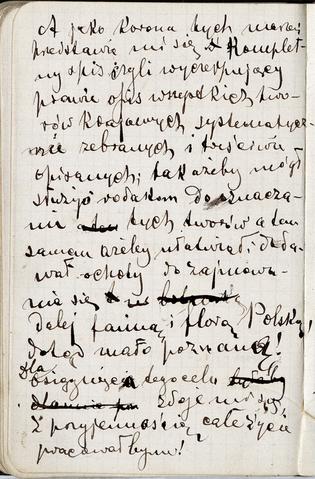 A jako korona tych marzeń
przedstawia mi się komplet-
ny opis czyli wyczerpujący
prawie opis wszystkich two-
rów krajowych, systematycz-
nie zebranych i treściwie
opisanych; tak ażeby mógł
służyć rodakom do oznacza-
nia tych tworów a tem
samem ażeby ułatwiał i doda-
wał ochoty do zajmowa-
nia się
dalej fauną i florą Polski,
dotąd mało poznaną!
Dla
osiągnięcia tego celu
zdaje mi się
z przyjemnością całe życie
pracowałbym!